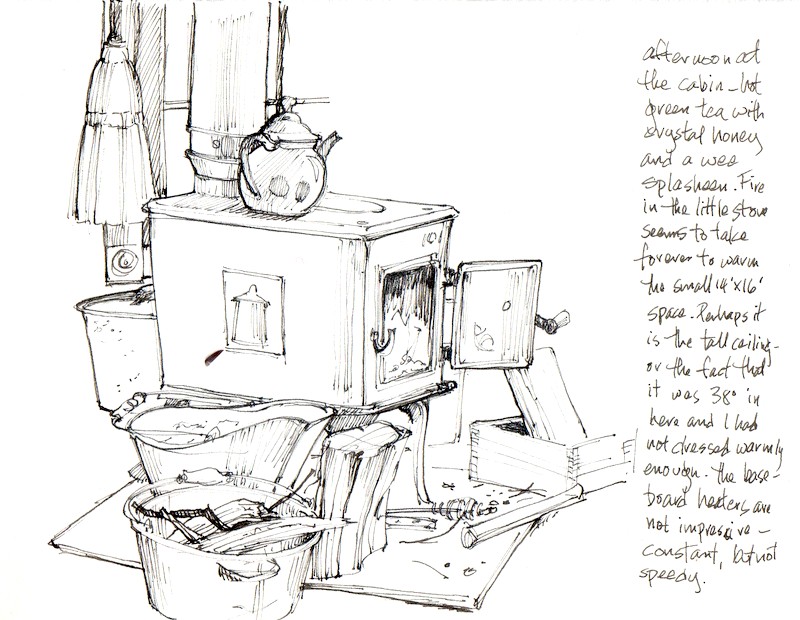 afternoon at
the cabin - hot
green tea with
crystal honey
and a wee
splasheen. Fire
in the little stove
seems to take
forever to warm
the small 14'x16'
space. Perhaps it
is the tall ceiling -
or the fact that
it was 38° in
here and I had
not dressed warmly
enough. The base-
board heaters are
not impressive -
constant, but not
speedy.